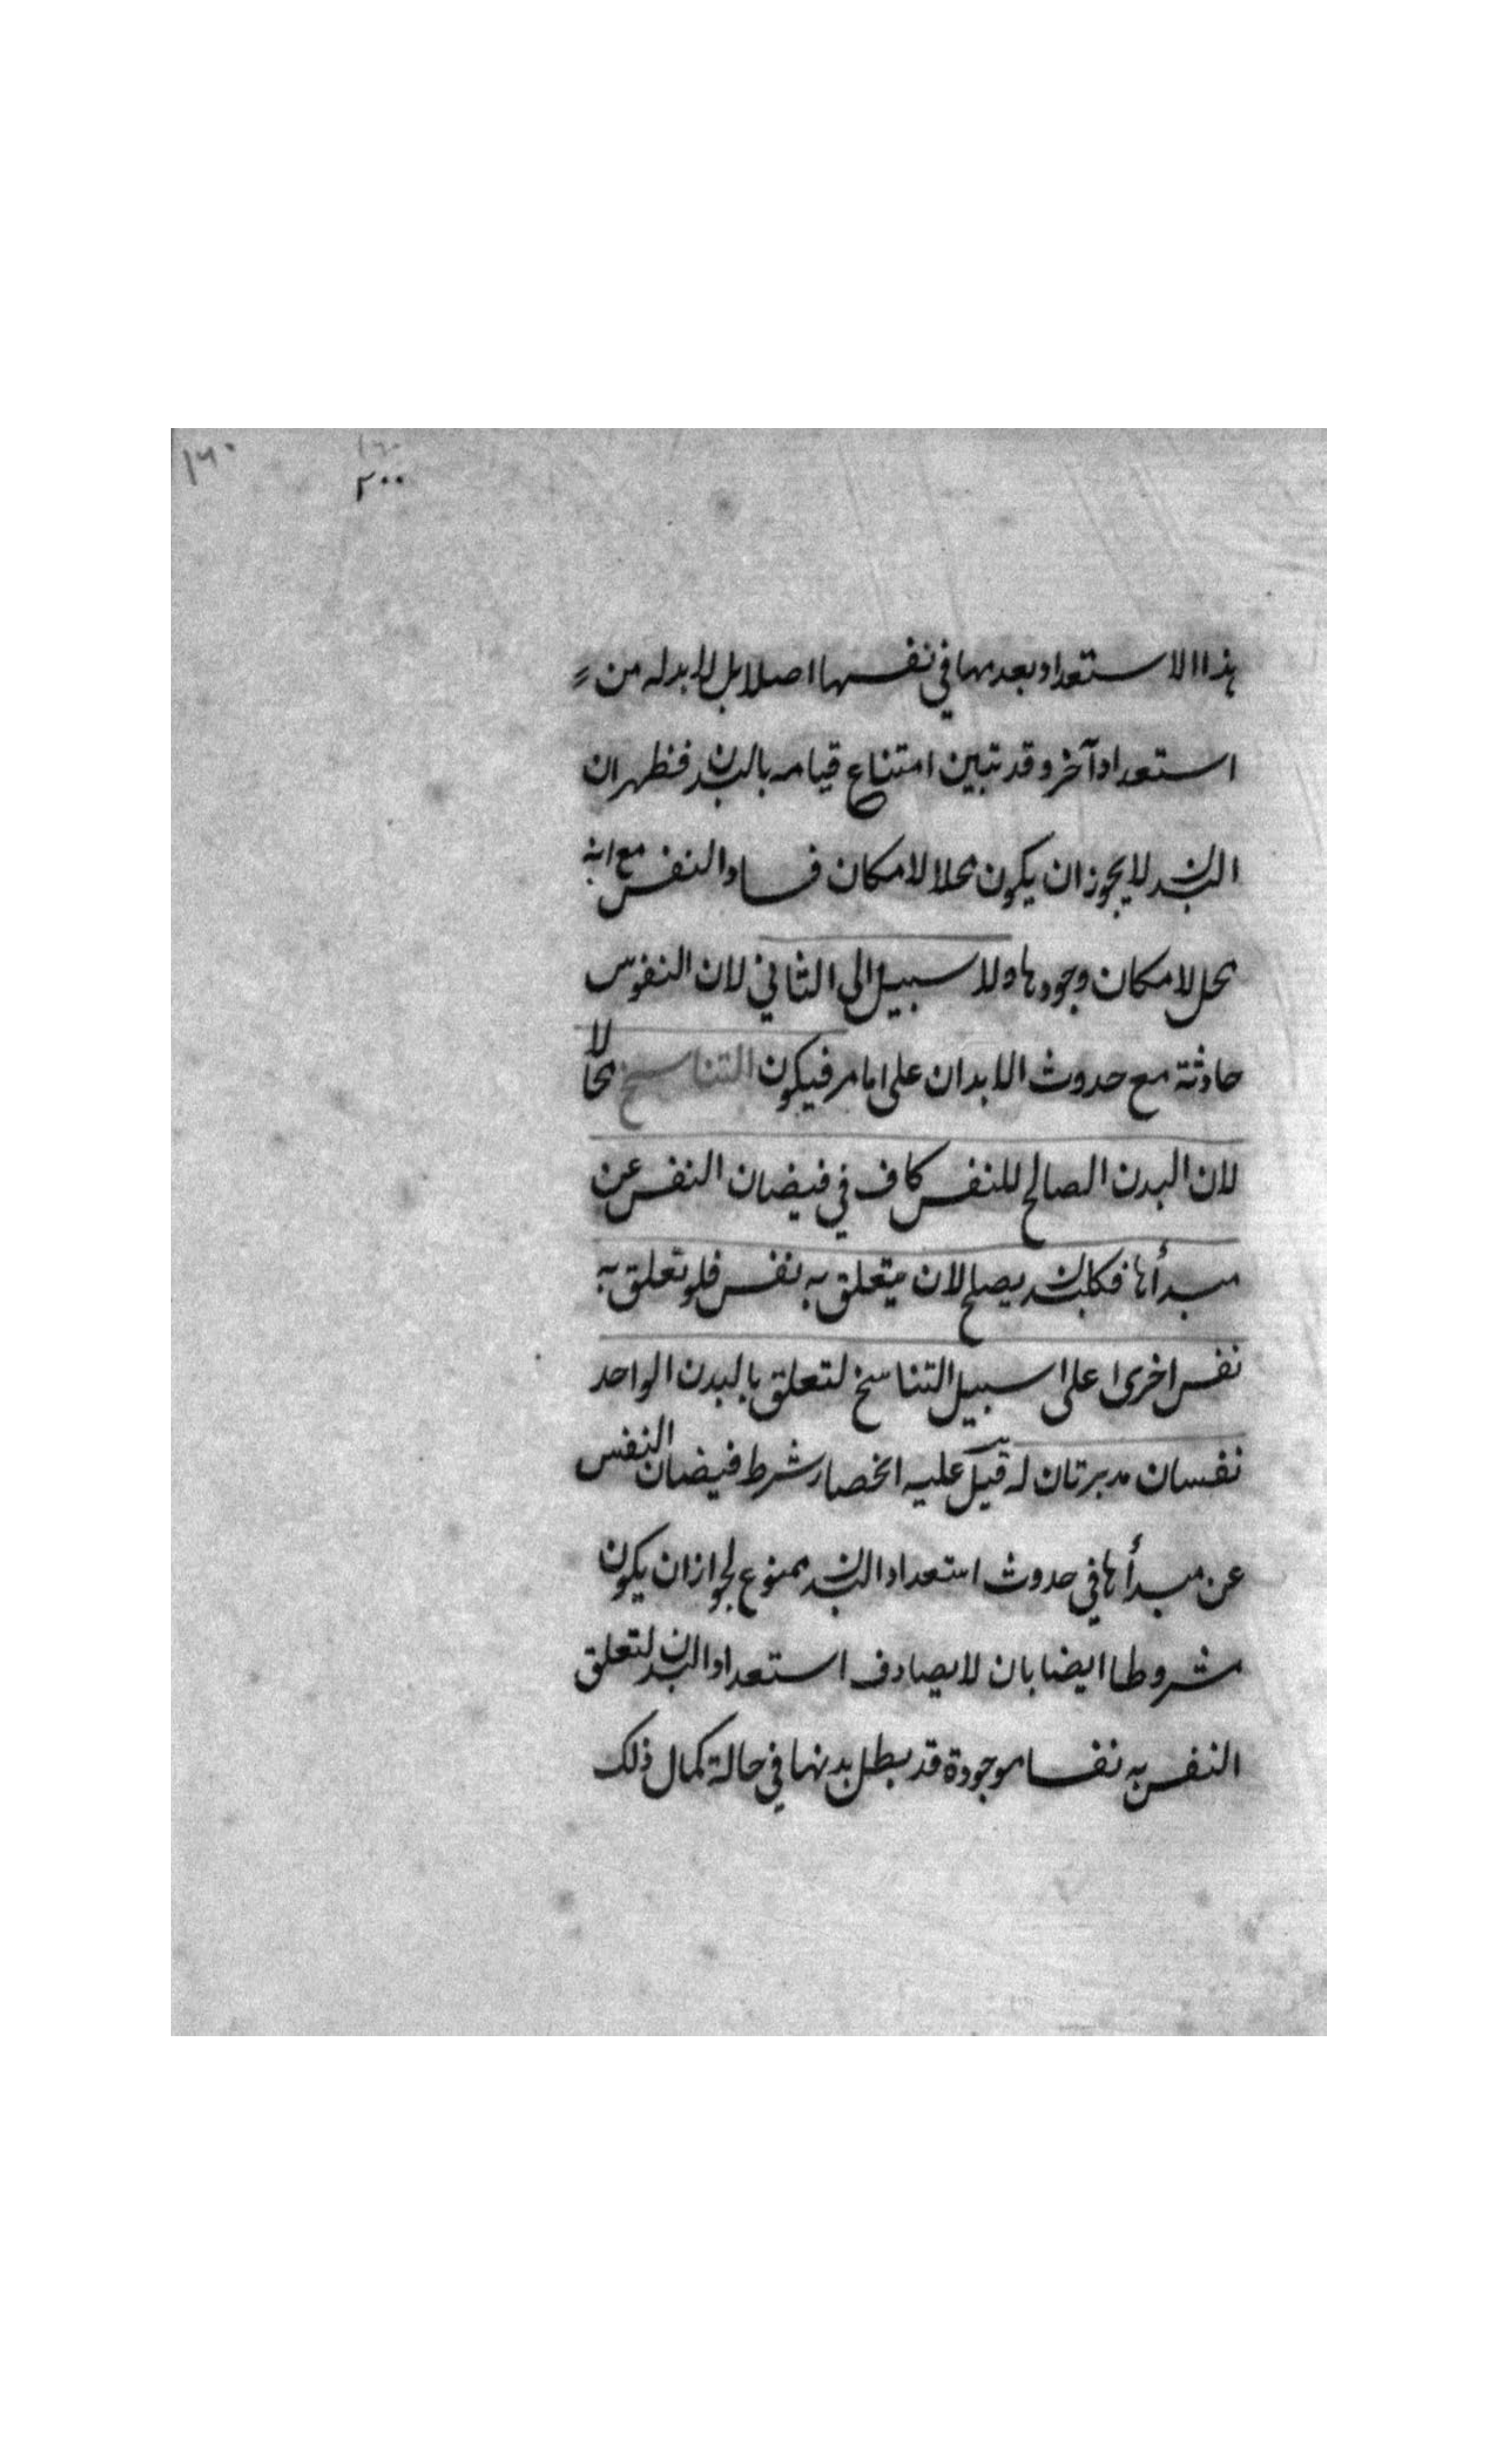 ١٦٠
١٦٠
٢٠٠
هذا الاستعداد بعدمها في نفسها اصلا بل لا بد له من
استعداد آخر وقد تبين امتناع قيامه بالبدن فظهر ان
البدن لا يجوز ان يكون محلا لامكان فساد النفس مع انه
محل لامكان وجودها ولا سبيل الى الثاني لان النفوس
حادثة مع حدوث الابدان على ما مر فيكون التناسخ محالا
لان البدن الصالح للنفس كاف في فيضان النفس عن
مبدأها فكل بدن يصلح لان يتعلق به نفس فلو تعلق به
نفس اخرى على سبيل التناسخ لتعلق بالبدن الواحد
نفسان مدبرتان له قيل عليه انحصار شرط فيضان النفس
عن مبدأها في حدوث استعداد البدن ممنوع لجواز ان يكون
مشروطا ايضا بان لا يصادف استعداد البدن لتعلق
النفس به نفسا موجودة قد بطل بدنها في حالة كمال ذلك